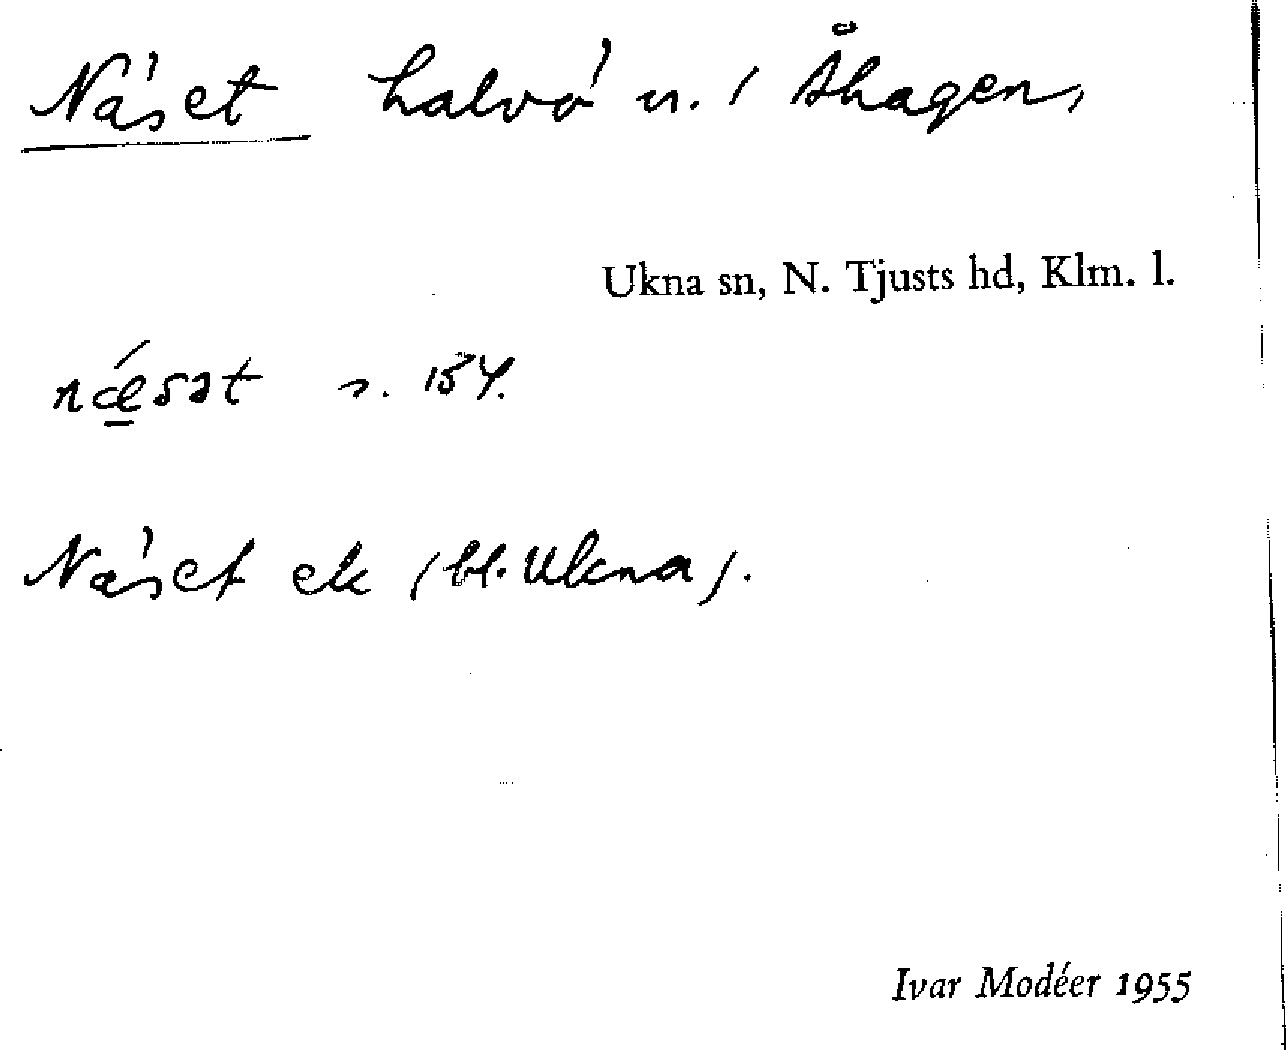 Näset halvö n. / Åhagen,
Ukna sn, N. Tjusts hd, Klm. l.
nǽsət s. 154.
Näset ek (bl. Ukna).
Ivar Modéer 1955